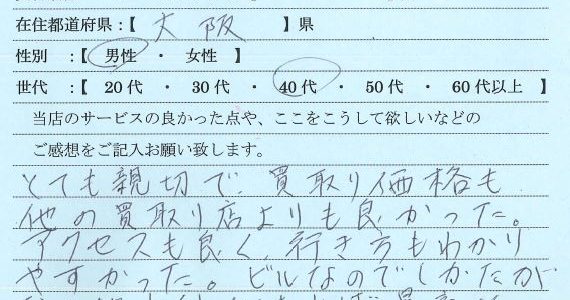 在住都道府県:【 大阪 】県
性別 :【 男性 ・ 女性 】
世代 :【 20代 ・ 30代 ・ 40代 ・ 50代 ・ 60代以上 】
当店のサービスの良かった点や、ここをこうして欲しいなどの
ご感想をご記入お願い致します。
とても親切で、買取り価格も
他の買取り店よりも良かった。
アクセスも良く、行き方もわかり
やすかった。ビルなのでしかたが